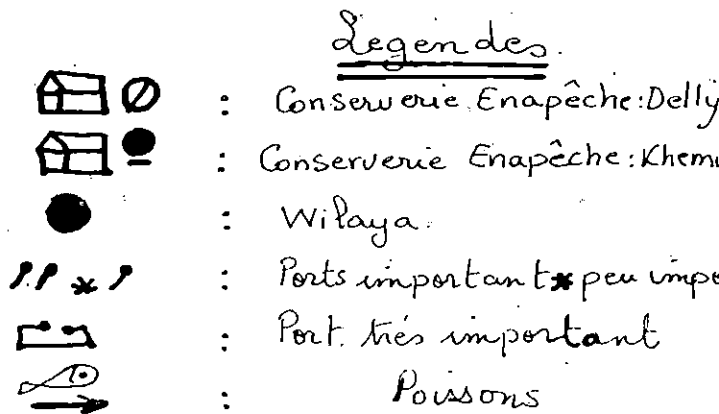 Legendes.
: Conserverie Enapêche: Delly
: Conserverie Enapêche: Khem
: Wilaya.
: Ports important * peu impo
: Port. trés important
: Poissons